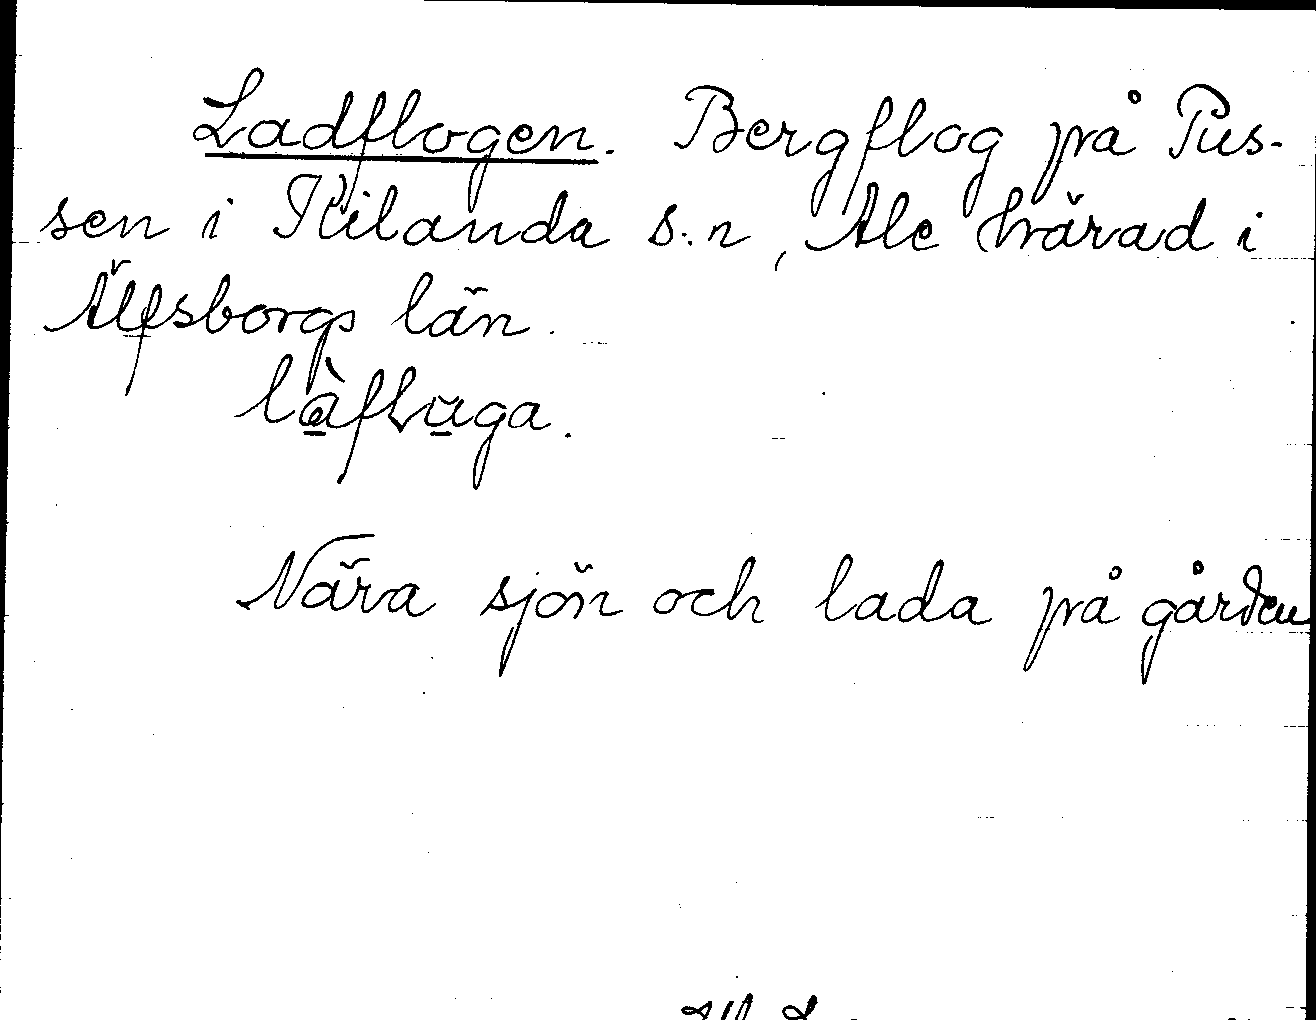 Ladflogen. Bergflog på Pus-
sen i Kilanda s.n, Ale härad i
Älfsborgs län.
làfluga.
Nära sjön och lada på gården